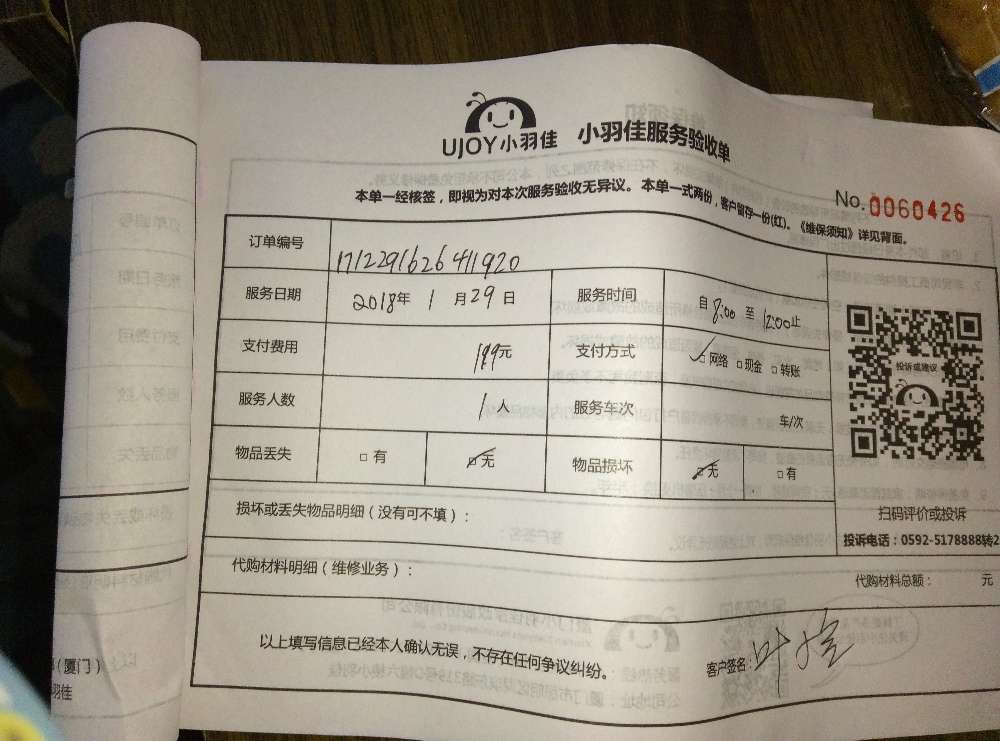 UJOY小羽佳 小羽佳服务验收单
本单一经核签，即视为对本次服务验收无异议。本单一式两份，客户留存一份(红)。《维保须知》详见背面。
No.0060426
订单编号 1712291626411920
服务日期 2018年 1 月 29 日 服务时间 自 8:00 至 12:00止
支付费用 199元 支付方式 ☑网络 □现金 □转账
服务人数 1人 服务车次 车/次
物品丢失 □有 ☑无 物品损坏 ☑无 □有
投诉或建议
扫码评价或投诉
投诉电话：0592-5178888转2
损坏或丢失物品明细（没有可不填）：
代购材料明细（维修业务）： 代购材料总额： 元
以上填写信息已经本人确认无误，不存在任何争议纠纷。 客户签名：
（厦门）
羽佳